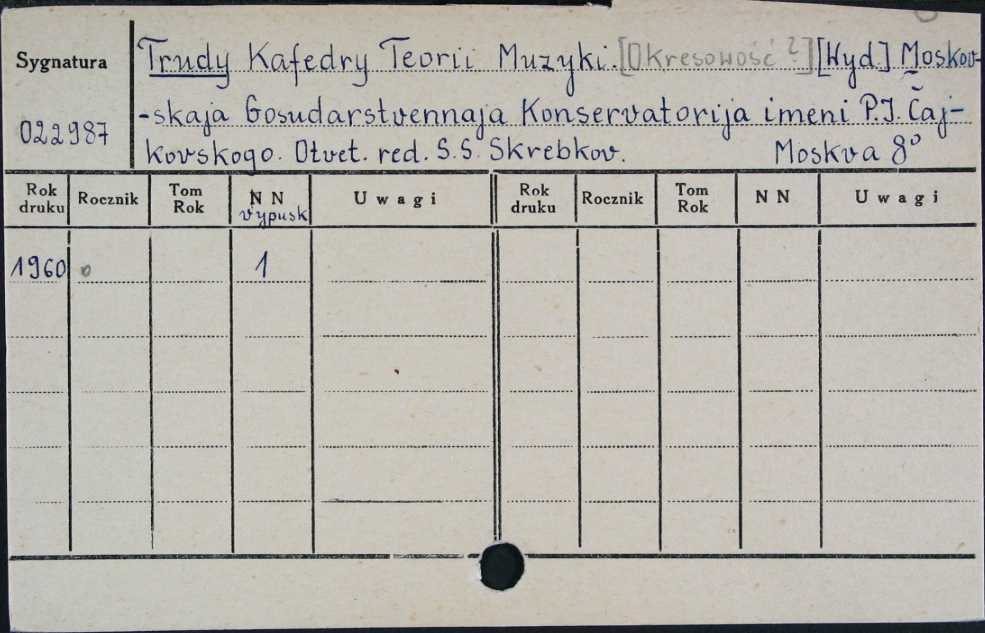 Sygnatura
022987
Trudy Kafedry Teorii Muzyki. [Okresowość?] [Wyd.] Moskov-
-skaja Gosudarstvennaja Konservatorija imeni P.I. Čaj-
kovskogo. Otvet. red. S.S. Skrebkov. Moskva 8°
Rok druku Rocznik Tom Rok NN vypusk Uwagi Rok druku Rocznik Tom Rok NN Uwagi
1960 o 1